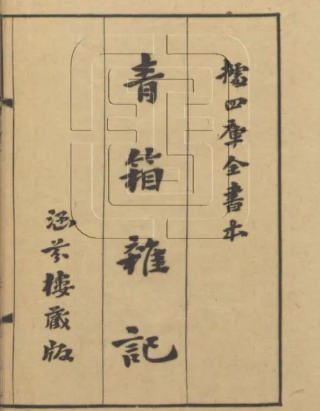 據四庫全書本
青箱雜記
涵芬樓藏版